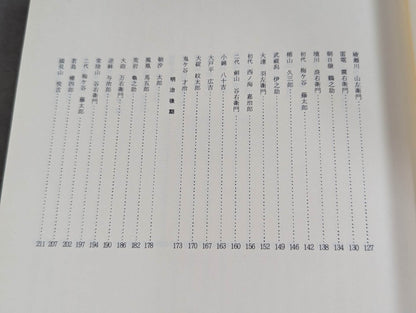 綾瀬川 山左衛門 127
雷電 震右衛門 130
朝日嶽 鶴之助 134
境川 浪右衛門 138
初代 梅ケ谷 藤太郎 142
楯山 久三郎 146
武蔵潟 伊之助 149
大達 羽左衛門 152
初代 西ノ海 嘉治郎 156
二代 剣山 谷右衛門 160
小錦 八十吉 163
大戸平 広吉 167
大碇 紋太郎 170
鬼ケ谷 才治 173
明治後期
朝汐 太郎 178
鳳凰 馬五郎 182
荒岩 亀之助 186
大砲 万右衛門 190
逆鉾 与治郎 194
常陸山 谷右衛門 197
二代 梅ケ谷 藤太郎 202
若島 権四郎 207
國見山 悦吉 211